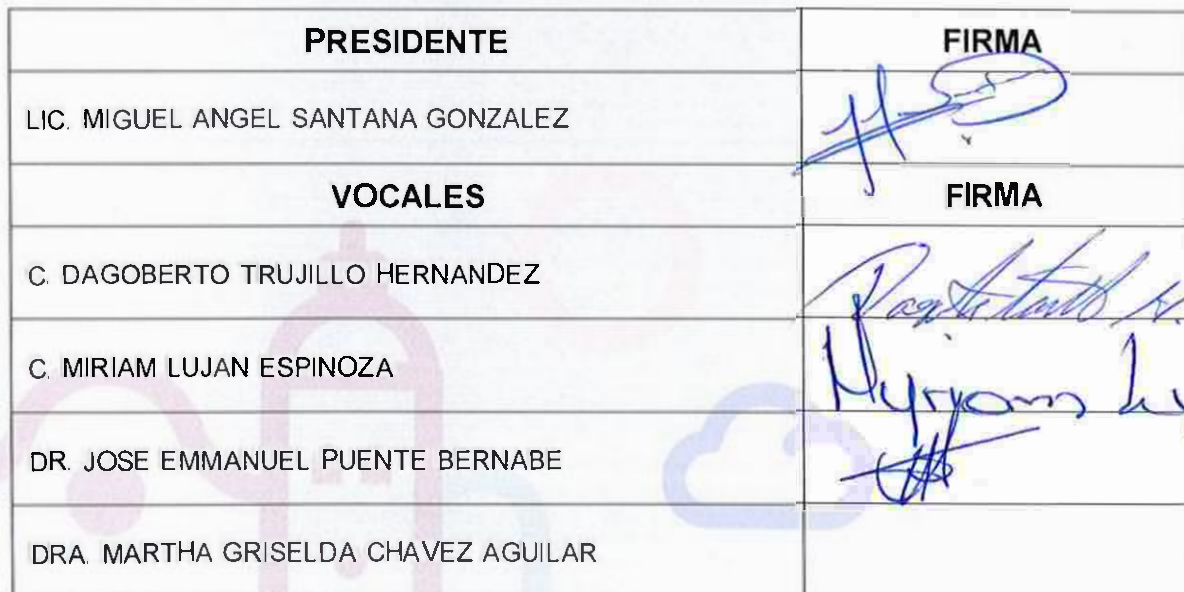 PRESIDENTE FIRMA
LIC. MIGUEL ANGEL SANTANA GONZALEZ
VOCALES FIRMA
C. DAGOBERTO TRUJILLO HERNANDEZ
C. MIRIAM LUJAN ESPINOZA Myriam Lu
DR. JOSE EMMANUEL PUENTE BERNABE
DRA. MARTHA GRISELDA CHAVEZ AGUILAR